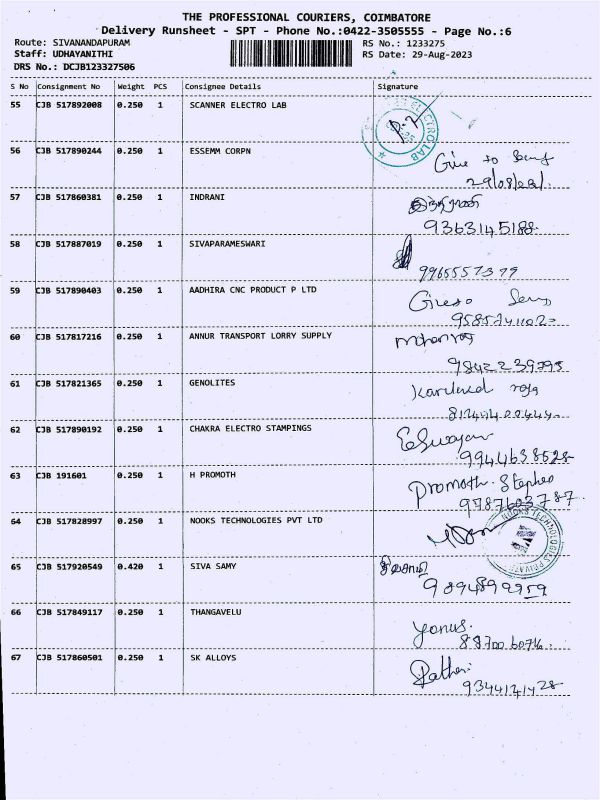 THE PROFESSIONAL COURIERS, COIMBATORE
Delivery Runsheet - SPT - Phone No.:0422-3505555 - Page No.:6
Route: SIVANANDAPURAM RS No.: 1233275
Staff: UDHAYANITHI RS Date: 29-Aug-2023
DRS No.: DCJB123327506
S No Consignment No Weight PCS Consignee Details Signature
55 CJB 517892008 0.250 1 SCANNER ELECTRO LAB
56 CJB 517890244 0.250 1 ESSEMM CORPN
29/08/23
57 CJB 517860381 0.250 1 INDRANI
இந்திராணி
9363145188
58 CJB 517887019 0.250 1 SIVAPARAMESWARI
59 CJB 517890403 0.250 1 AADHIRA CNC PRODUCT P LTD
60 CJB 517817216 0.250 1 ANNUR TRANSPORT LORRY SUPPLY
61 CJB 517821365 0.250 1 GENOLITES
62 CJB 517890192 0.250 1 CHAKRA ELECTRO STAMPINGS
9944638528
63 CJB 191601 0.250 1 H PROMOTH
Promoth. Stephen
9787603787
64 CJB 517828997 0.250 1 NOOKS TECHNOLOGIES PVT LTD
NOOKS TECHNOLOGIES PRIVATE
65 CJB 517920549 0.420 1 SIVA SAMY
சிவசாமி
9894899959
66 CJB 517849117 0.250 1 THANGAVELU
Yonus.
67 CJB 517860501 0.250 1 SK ALLOYS
9344121428